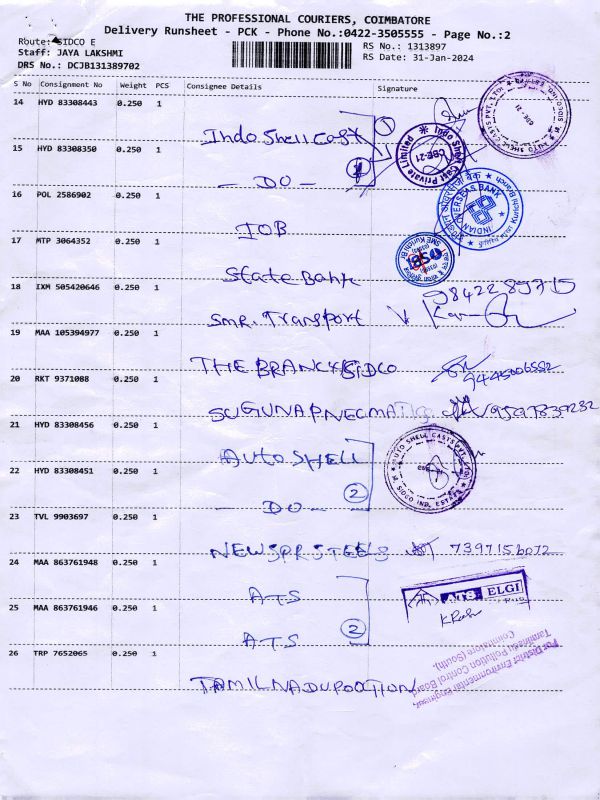 THE PROFESSIONAL COURIERS, COIMBATORE
Delivery Runsheet - PCK - Phone No.:0422-3505555 - Page No.:2
Route: SIDCO E
RS No.: 1313897
Staff: JAYA LAKSHMI
RS Date: 31-Jan-2024
DRS No.: DCJB131389702
S No Consignment No Weight PCS Consignee Details Signature
14 HYD 83308443 0.250 1 Indo Shell Cast
15 HYD 83308350 0.250 1 - DO -
16 POL 2586902 0.250 1 IOB
17 MTP 3064352 0.250 1 State Bank
18 IXM 505420646 0.250 1 SMR. Transport
19 MAA 105394977 0.250 1 THE BRANCH SIDCO 9445006552
20 RKT 9371088 0.250 1 SUGUNA PNEUMATIC
21 HYD 83308456 0.250 1 AUTO SHELL
22 HYD 83308451 0.250 1 - DO - 2
23 TVL 9903697 0.250 1 NEWSPR STEELS 7397156072
24 MAA 863761948 0.250 1 ATS
ATS ELGI
25 MAA 863761946 0.250 1 ATS 2
26 TRP 7652065 0.250 1
Indo Shell Cast Private Limited
CBE-21
INDIAN OVERSEAS BANK
Kurichi Branch
SBI
AUTO SHELL CASTS PVT. LTD.
SIDCO IND. ESTATE
For District Environmental Engineer,
Tamilnadu Pollution Control Board,
Coimbatore (South).